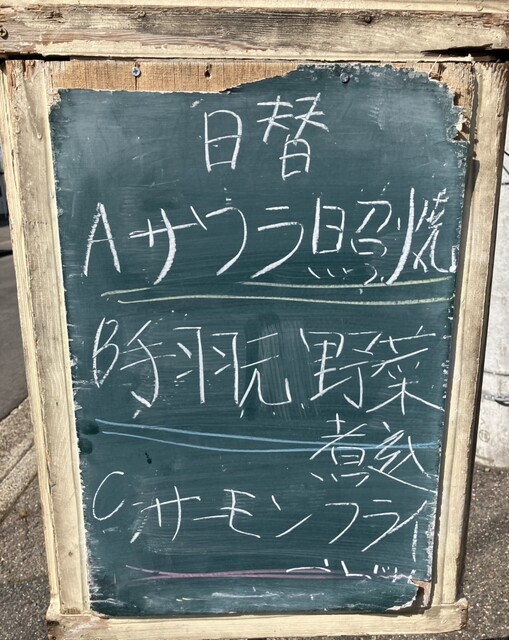 日替
Aサワラ照焼
B手羽元野菜
煮込
Cサーモンフライ